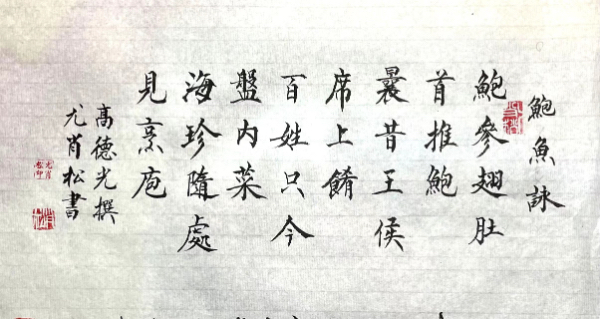 鮑魚詠
鮑參翅肚
首推鮑
曩昔王侯
席上餚
百姓只今
盤內菜
海珍隨處
見烹庖
高德光撰
尤肖松書